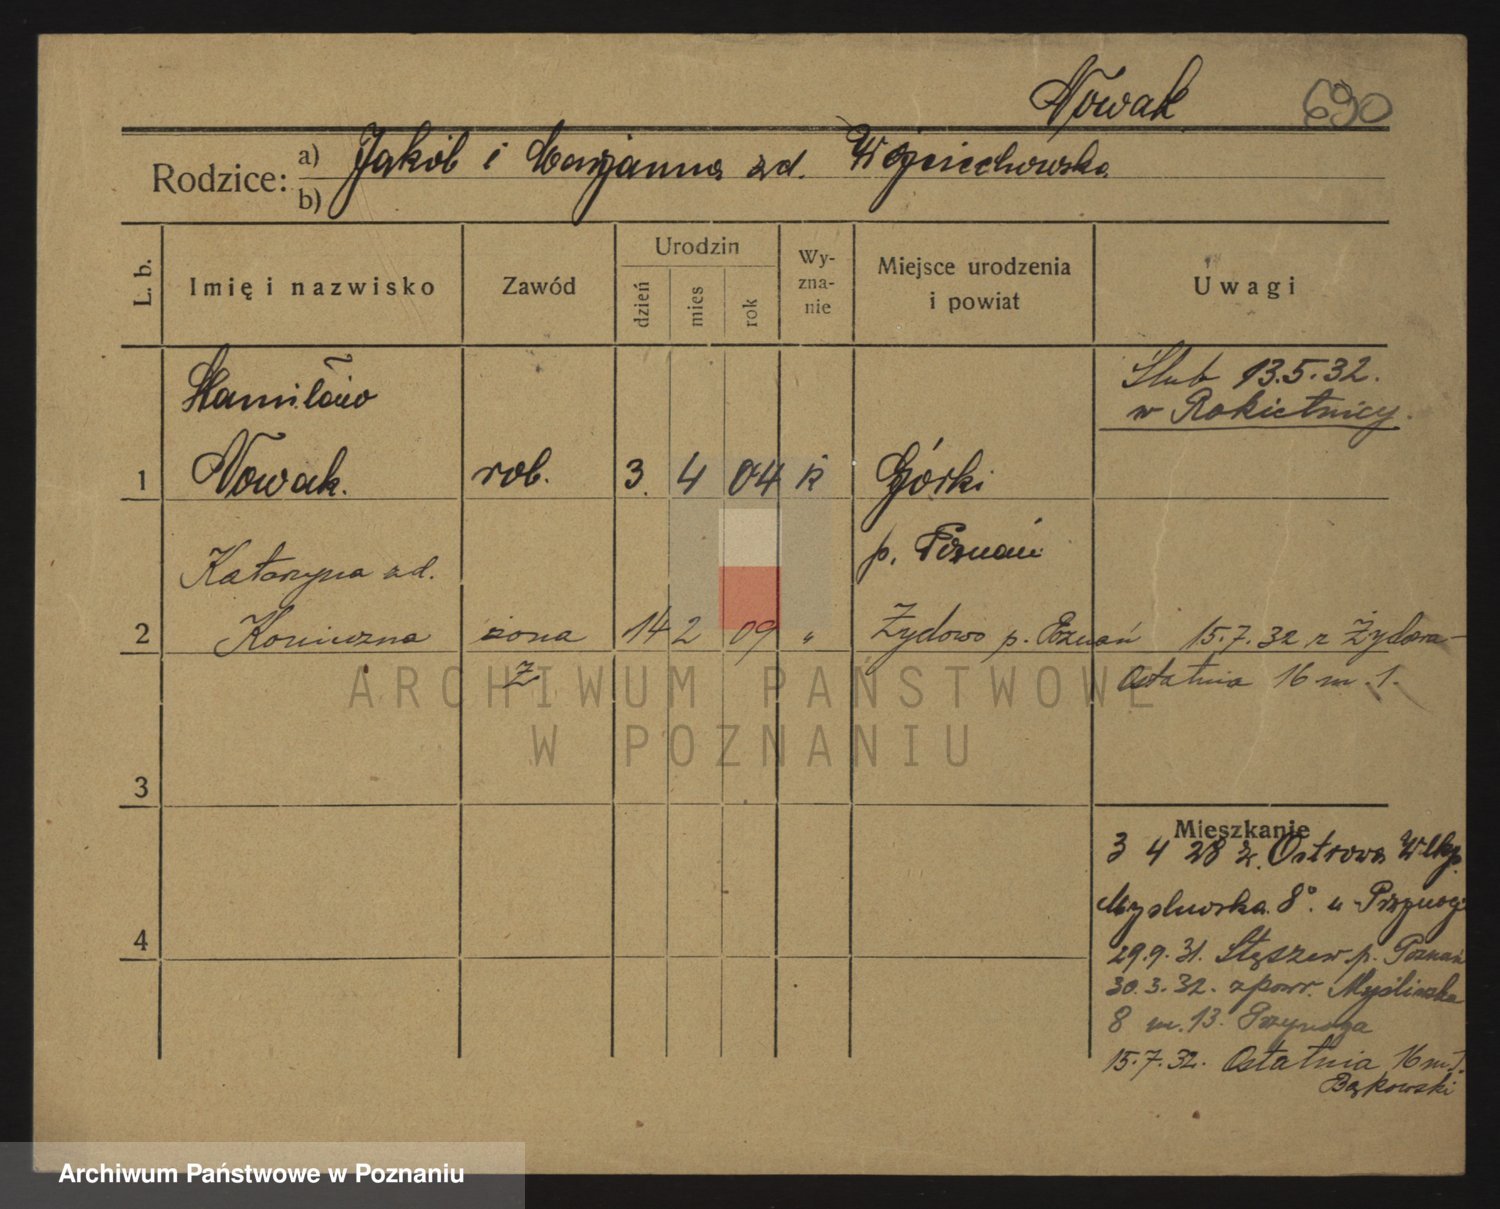 Nowak
690
Rodzice:
a) Jakób i Marjanna zd. Wojciechowska
b)
L. b.
Imię i nazwisko
Zawód
Urodzin
dzień
mies
rok
Wy-
zna-
nie
Miejsce urodzenia
i powiat
Uwagi
Stanisław
Ślub 13.5.32.
w Rokietnicy.
1 Nowak. rob. 3. 4 04 k Górki
p. Poznań
Katarzyna zd.
2 Konieczna żona 14 2 09 " Żydowo p. Poznań 15.7.32 z Żydowa
Ż
Ostatnia 16 m. 1.
ARCHIWUM PAŃSTWOWE
W POZNANIU
3
Mieszkanie
3 4 28 z. Ostrowa Wlkp.
8 u
4
29.9.31. Stęszew p. Poznań
30.3.32. zpowr. Myśliwska
8 m. 13. Przynoga
15.7.32. Ostatnia 16 m. 1.
Bąkowski
Archiwum Państwowe w Poznaniu